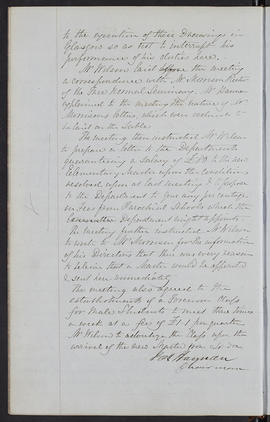 to the execution of these Drawings in
Glasgow so as not to interrupt his
performance of his duties here.
Mr Wilson laid before the meeting
a correspondence with Mr Morrison Rector
of the Free Normal Seminary. Mr Hannan
explained to the meeting the nature of Mr
Morrison's letters, which were ordered to
be laid on the Table.
The meeting then instructed Mr Wilson
to prepare a letter to the Department
guaranteeing a Salary of £70 to the new
Elementary Master upon the conditions
resolved upon at last meeting & to propose
to the Department to give any percentage
on fees from Parochial Schools which the
Department might appoint.
The meeting further instructed Mr Wilson
to write to Mr Morrison for the information
of his Directors that there was every reason
to believe that a Master would be appointed
& sent here immediately.
The meeting also agreed to the
establishment of a Forenoon Class
for Male Students to meet three times
a week at a fee of £1 1 per quarter
Mr Wilson to advertise the Class upon the
arrival of the new Master from London
Hannan
Chairman